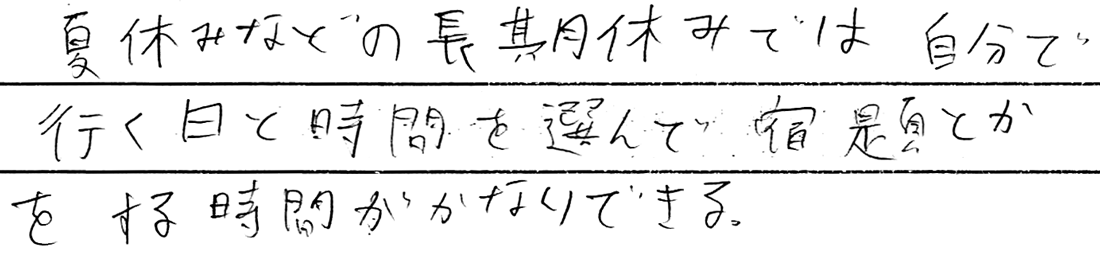 夏休みなどの長期休みでは自分で
行く日と時間を選んで宿題とか
をする時間がかなりできる。